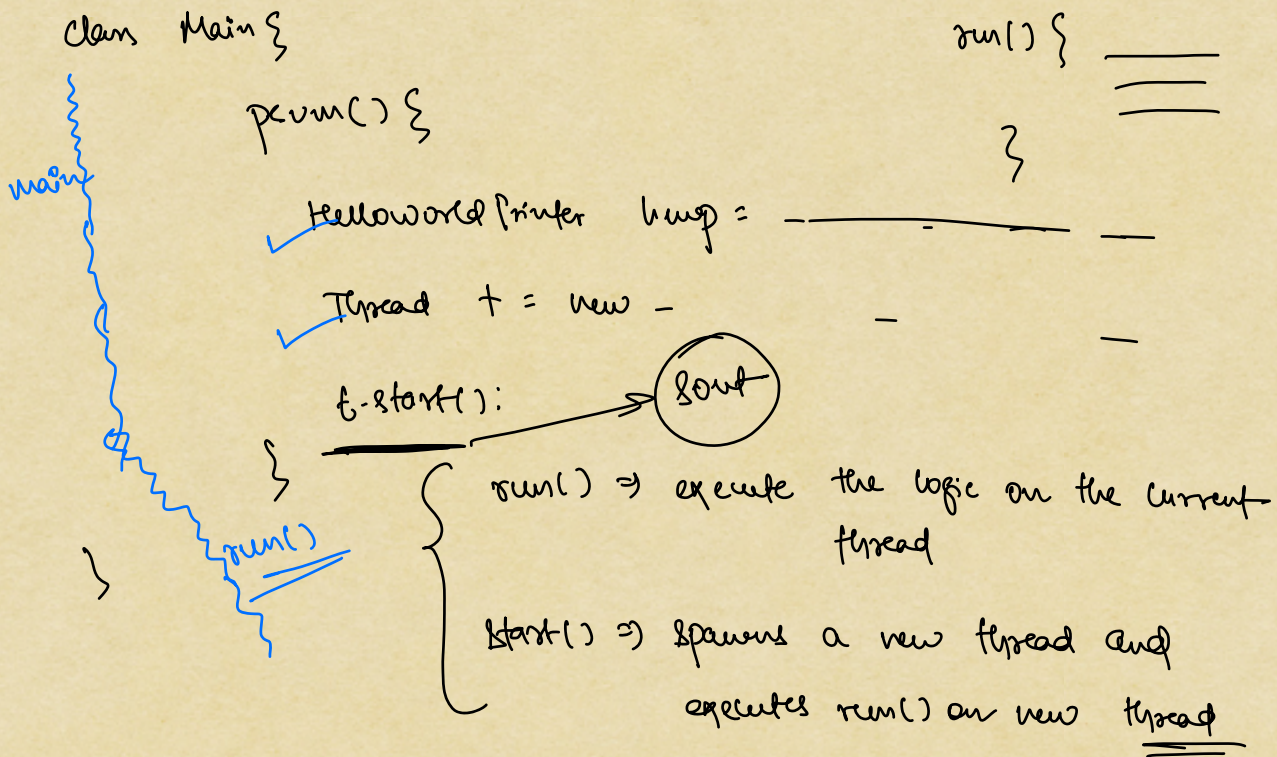 class Main {
run() {
psvm() {
}
main
HelloWorldPrinter hwp =
Thread t = new
t.start():
Sout
}
run() => execute the logic on the current
thread
run()
}
start() => spawns a new thread and
executes run() on new thread